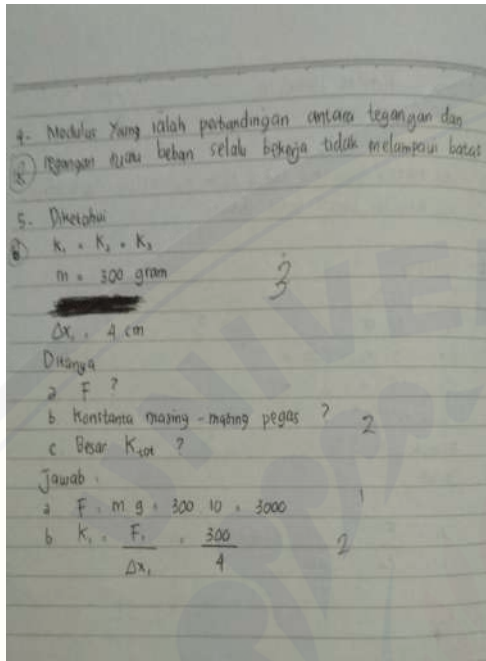 4. Modulus Young ialah perbandingan antara tegangan dan
regangan beban selalu bekerja tidak melampaui batas
5. Diketahui
K₁ = K₂ = K₃
m = 300 gram
3
Δx₁ = 4 cm
Ditanya
a F ?
b Konstanta masing-masing pegas ?
2
c Besar Ktot ?
Jawab :
a F = m g = 300 10 = 3000 1
b K₁ = F₁/Δx₁ = 300/4 2
UNIVE